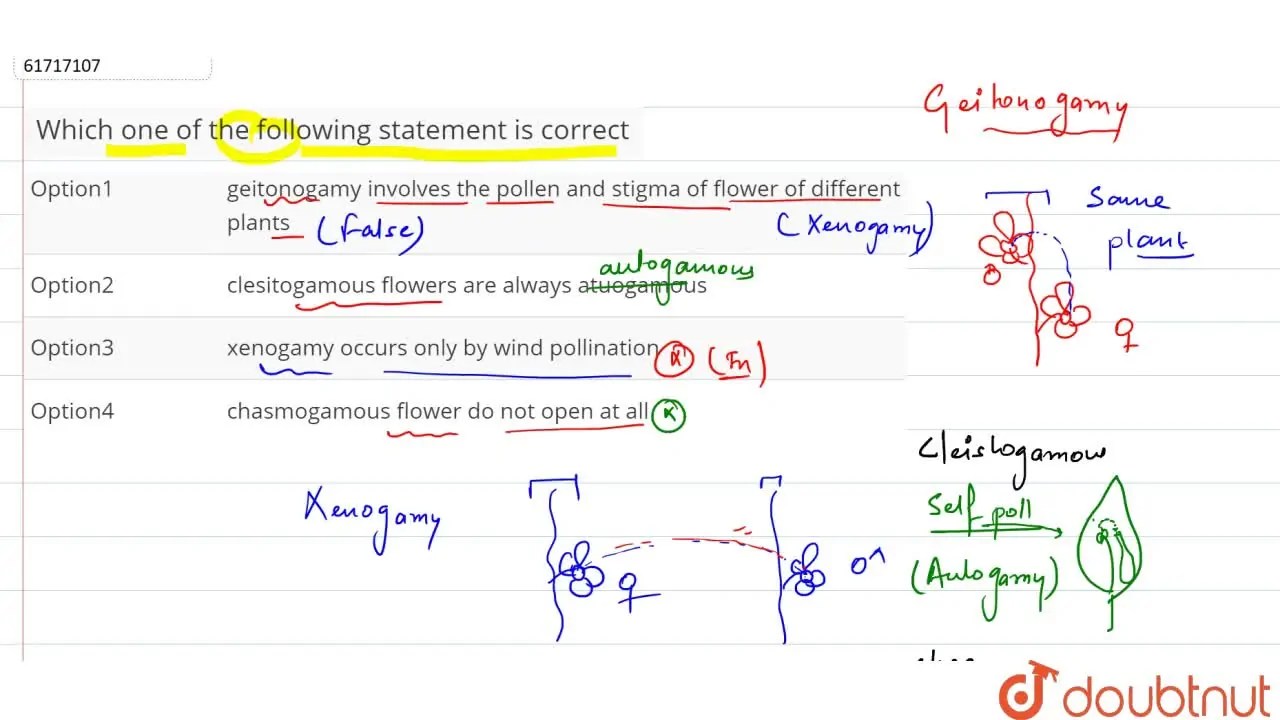 61717107
Which one of the following statement is correct
Option1 geitonogamy involves the pollen and stigma of flower of different
plants (False) (Xenogamy)
autogamous
Option2 clesitogamous flowers are always atuogamous
Option3 xenogamy occurs only by wind pollination (In)
Option4 chasmogamous flower do not open at all
Xenogamy
Geitonogamy
Same
plant
Cleistogamous
Self poll
(Autogamy)
doubtnut